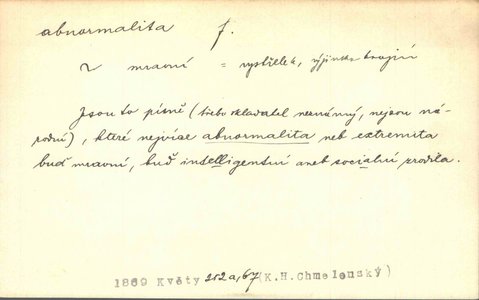 abnormalita f.
2 mravní = výstřelek, výjimka krajní
Jsou to písně (třeba skladatel neznámý, nejsou ná-
rodní), které nejvíce abnormalita neb extremita
buď mravní, buď intelligentní aneb socialní zrodila.
1869 Květy 252a,67 (K.H.Chmelenský)